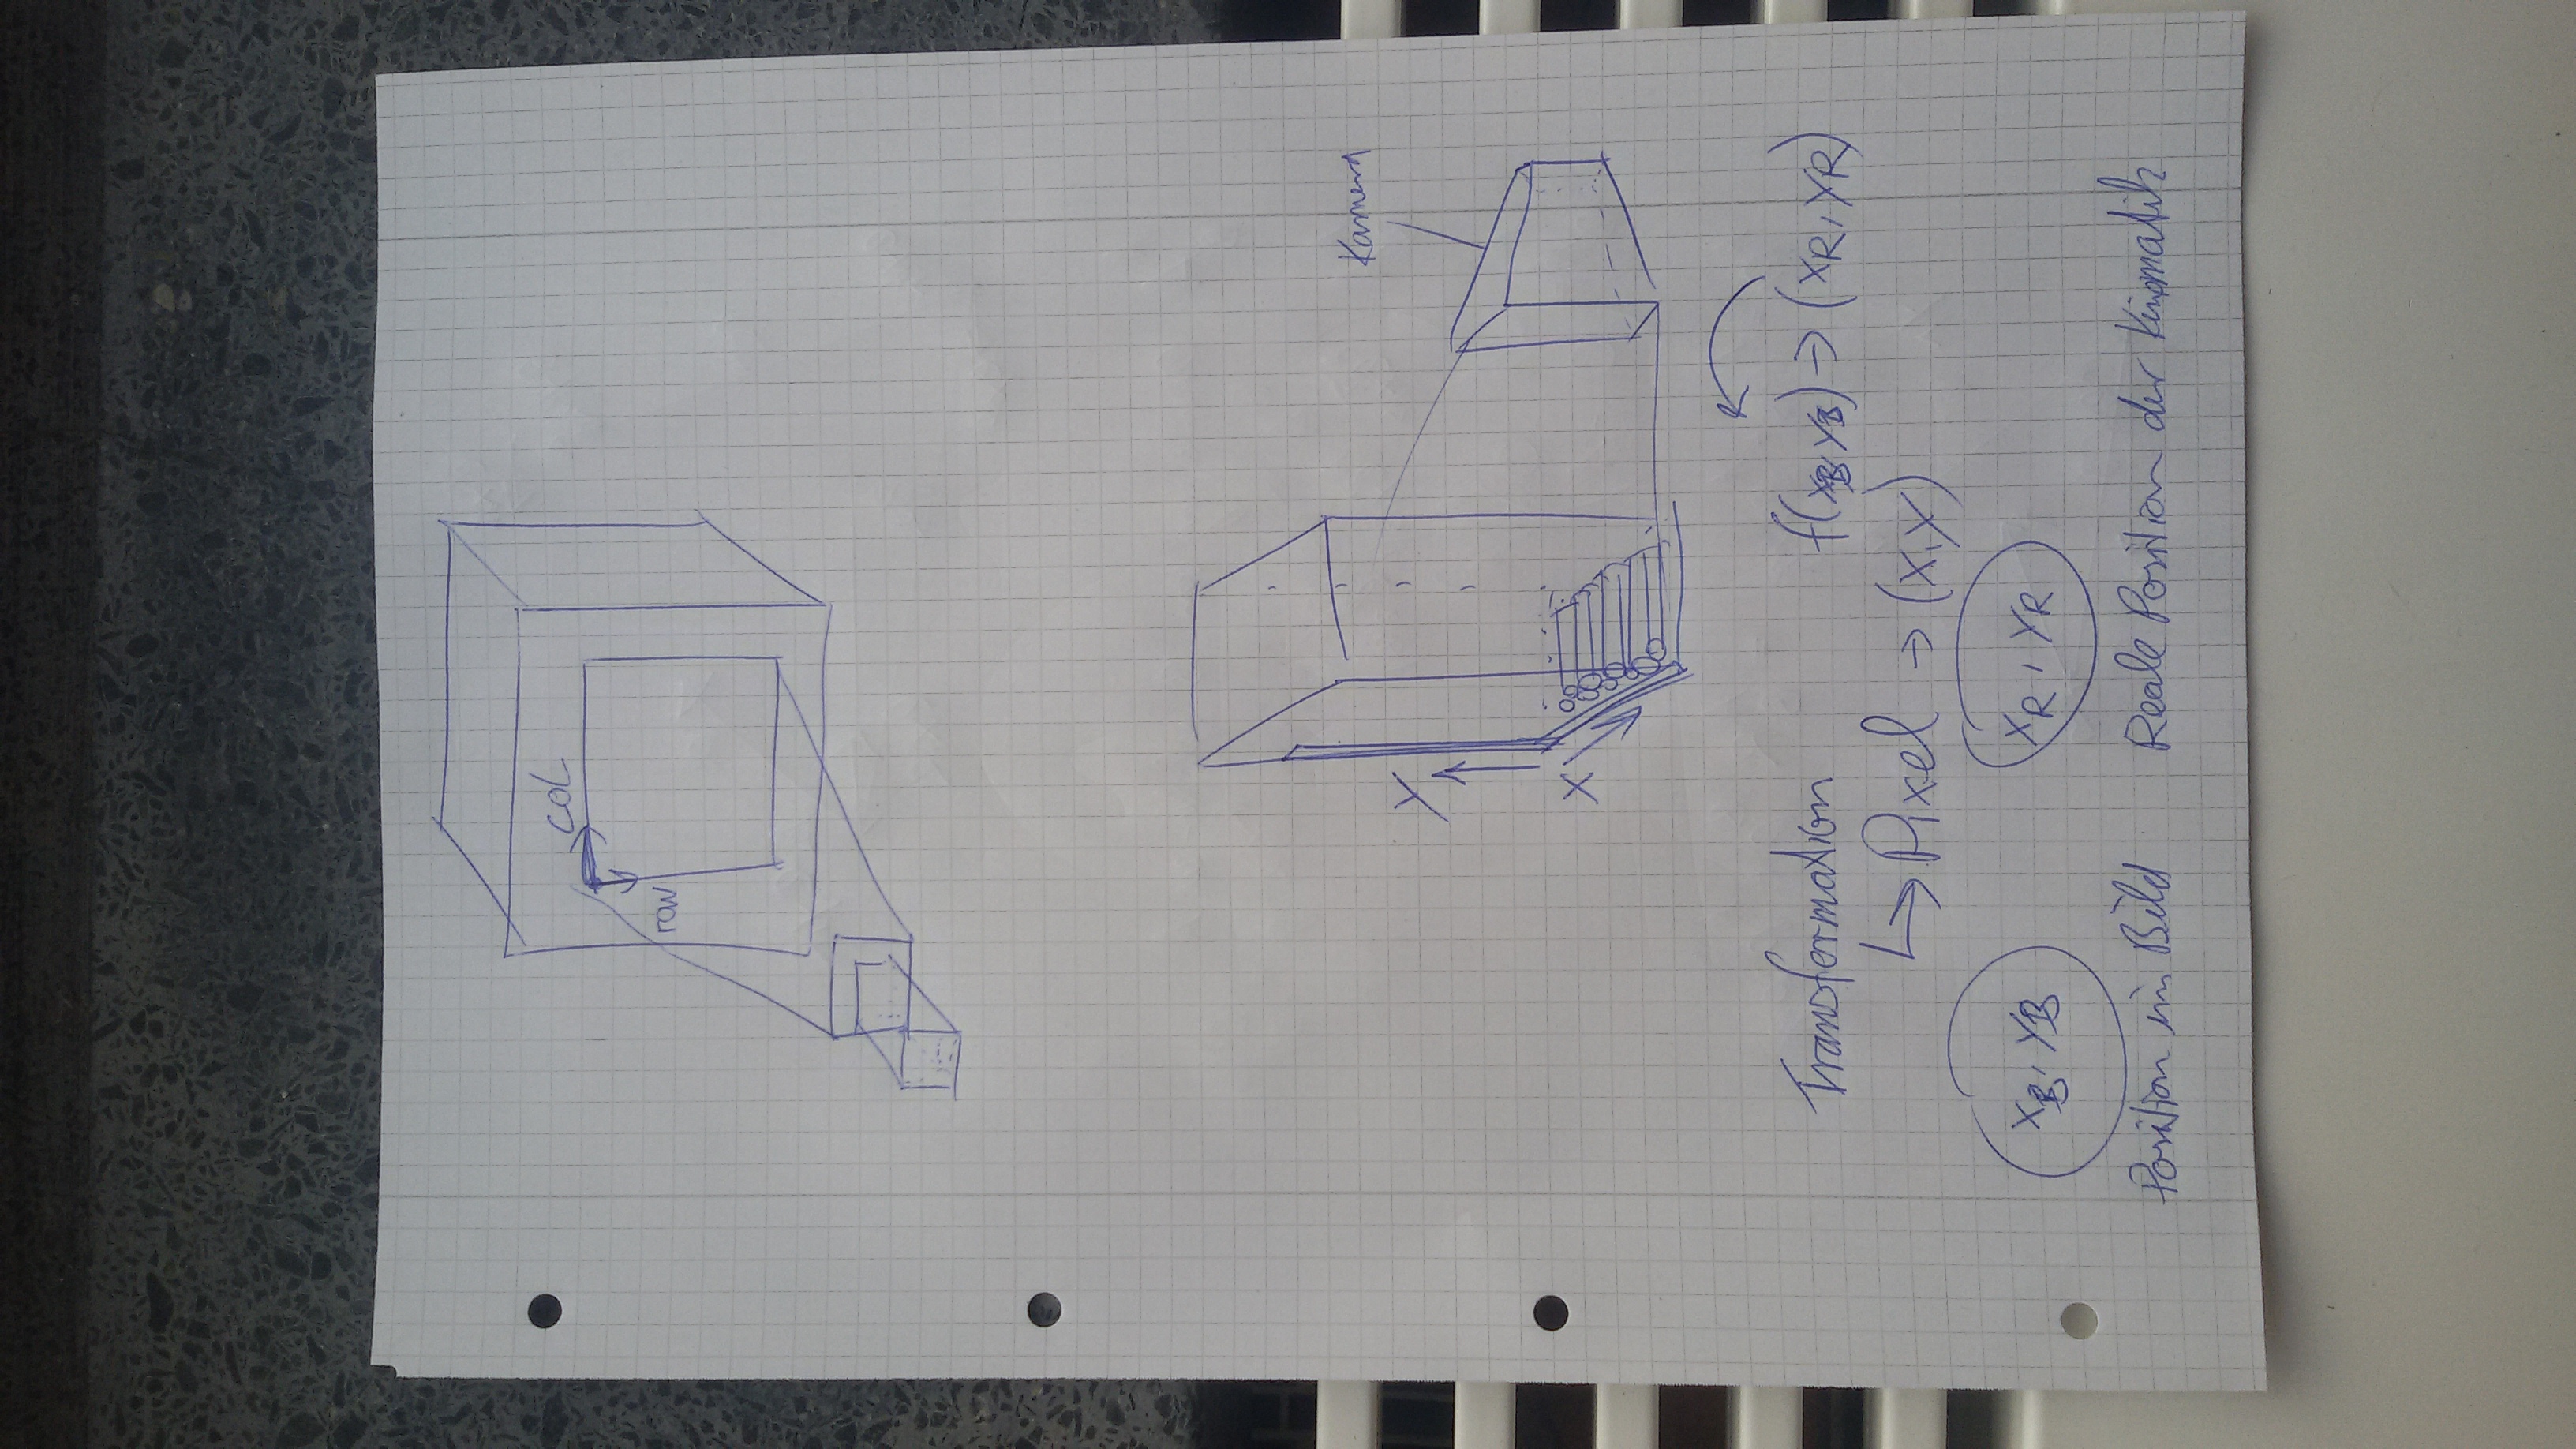 COL
row
Kamera
Y
X
Transformation
f(xB, yB) → (xR, yR)
↳ Pixel → (x,y)
xB, yB
xR, yR
Position im Bild
Reale Position der Kinematik